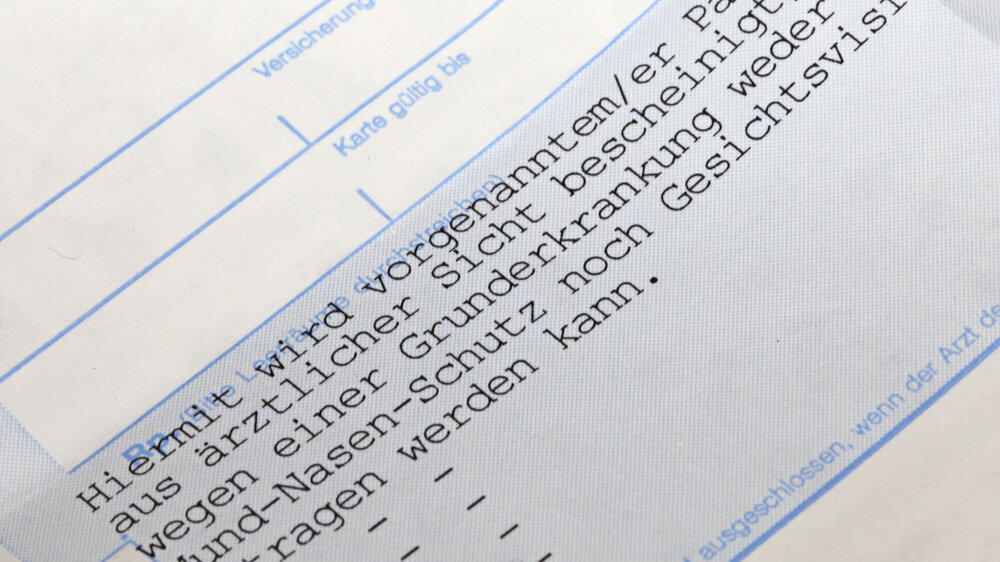 Versicherung
Karte gültig bis
Rp. (Bitte Leerräume durchstreichen)
Hiermit wird vorgenanntem/er Pa
aus ärztlicher Sicht bescheinigt,
wegen einer Grunderkrankung weder
Mund-Nasen-Schutz noch Gesichtsvisi
tragen werden kann.
- -
- -
- -
ausgeschlossen, wenn der Arzt de